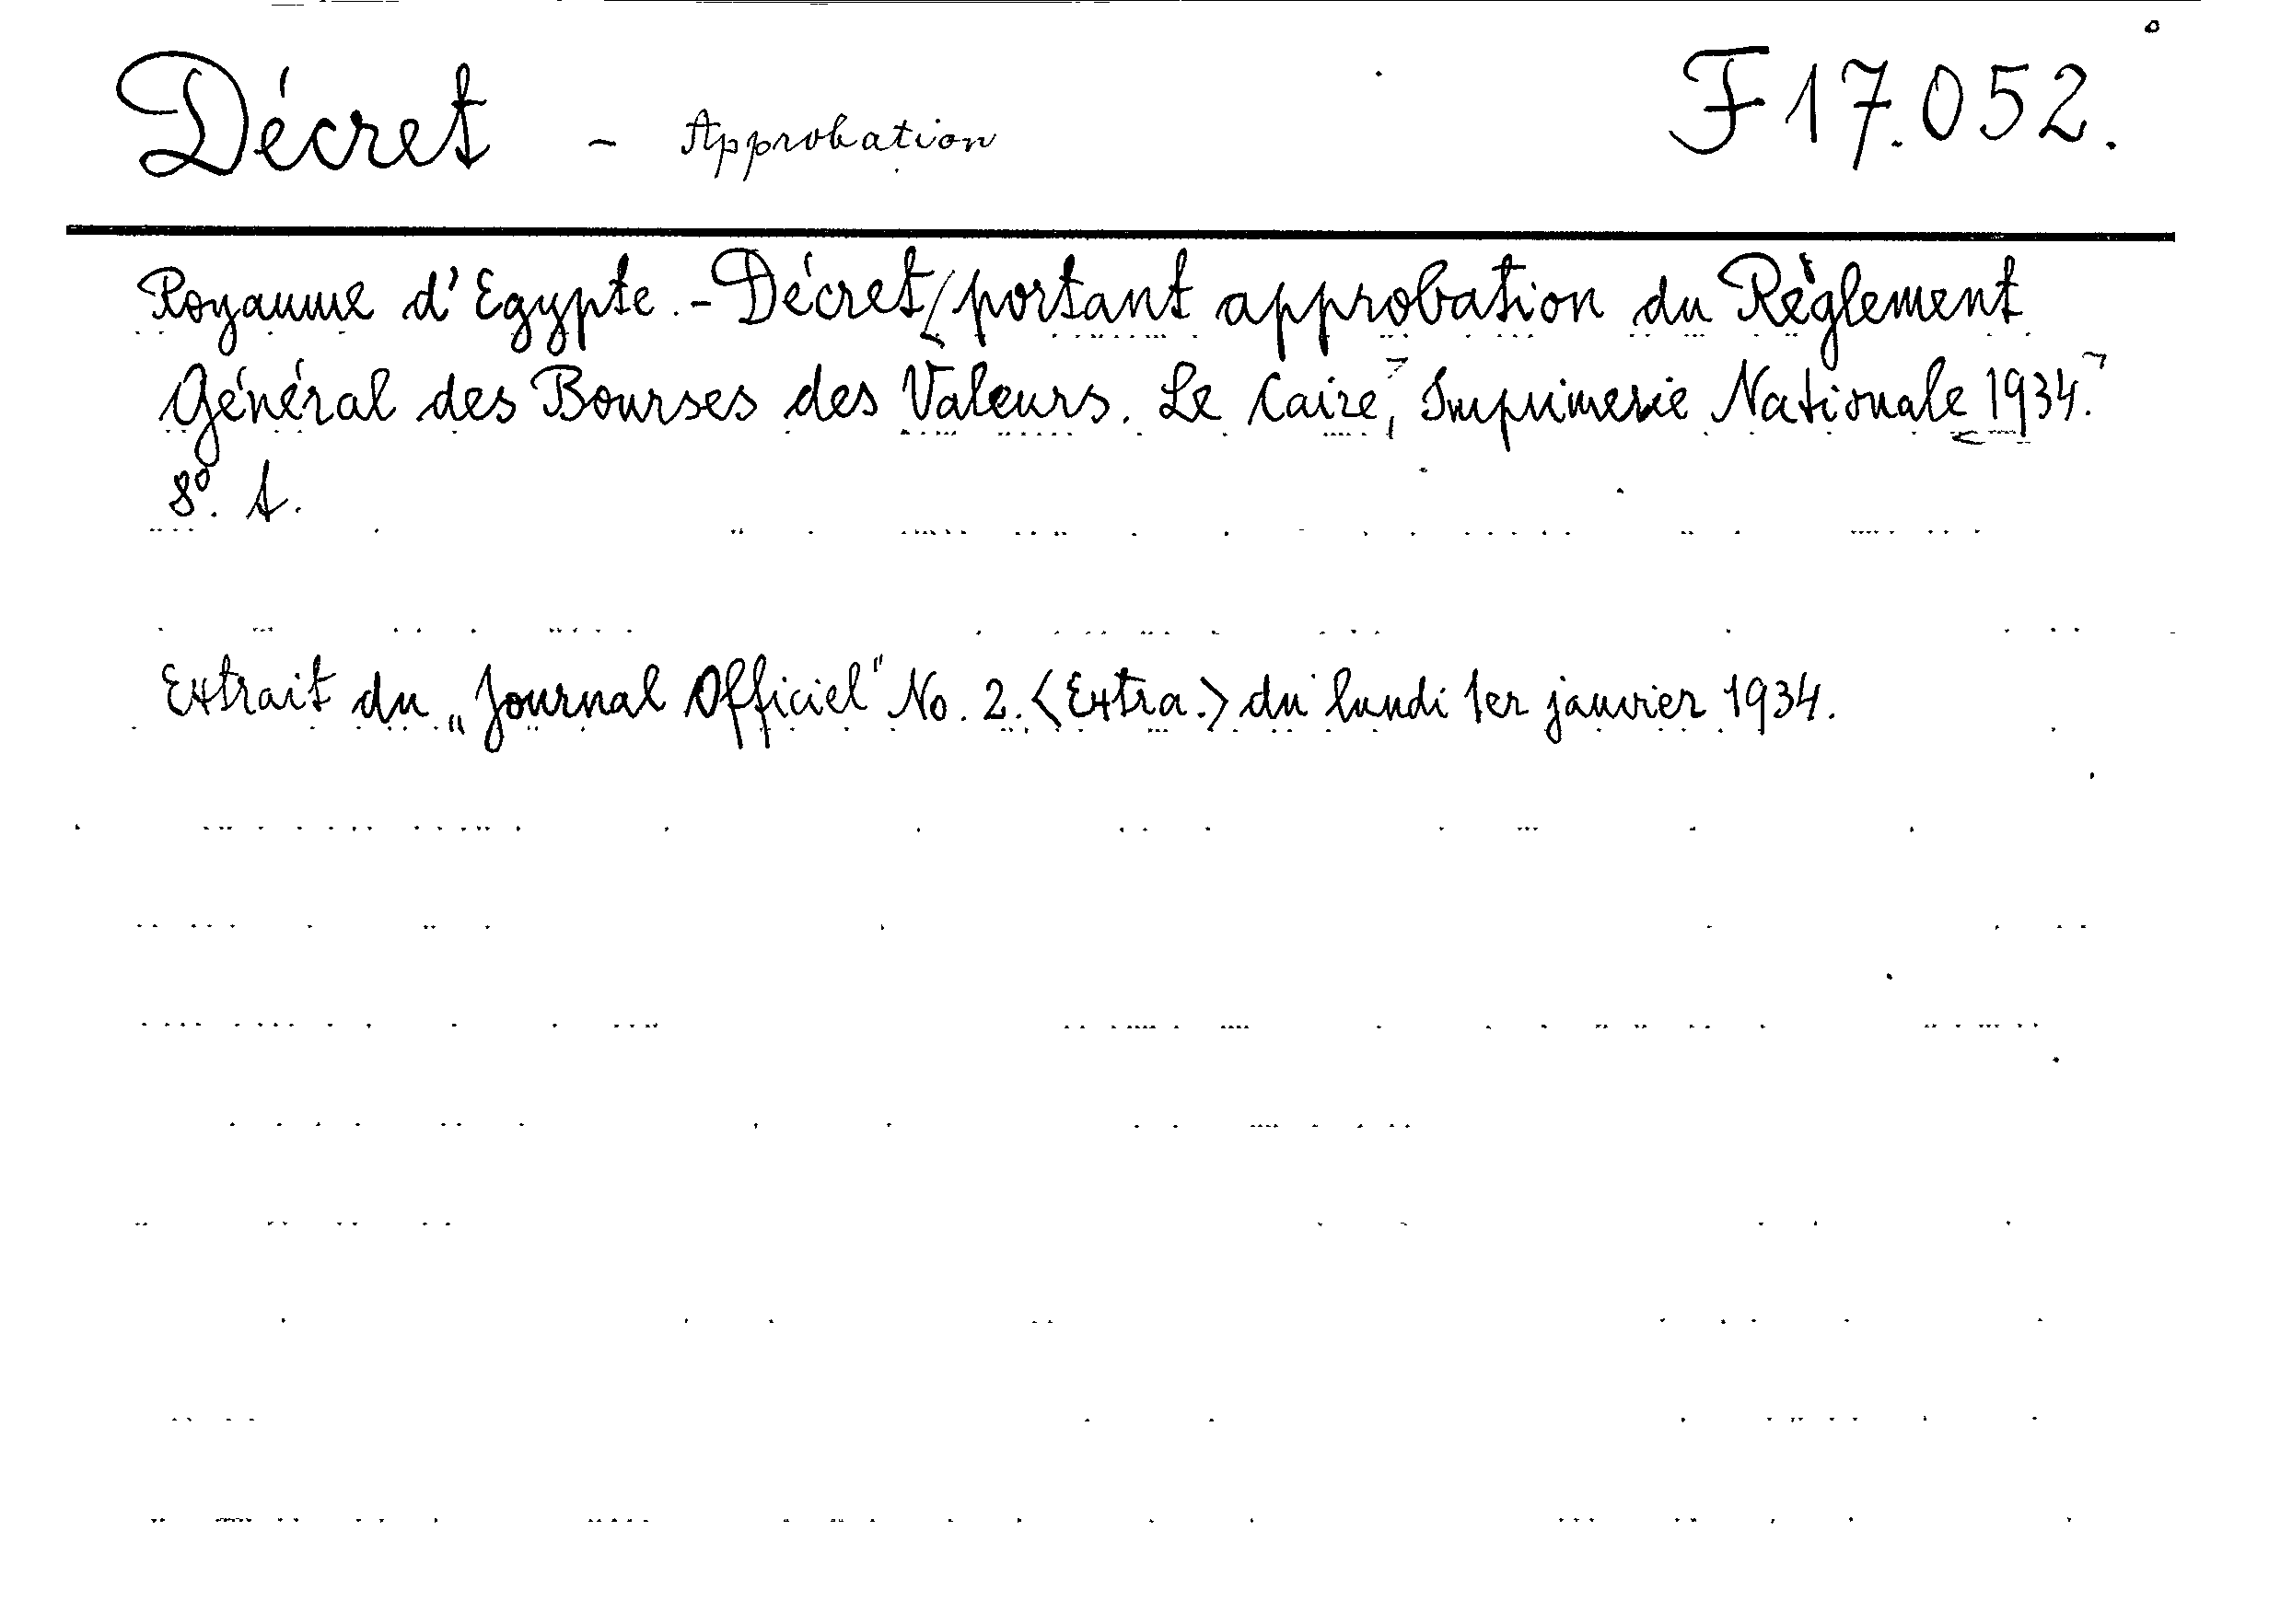 Décret - Approbation F 17.052.
Royaume d'Egypte. - Décret/portant approbation du Règlement
Général des Bourses des Valeurs. Le Caire, Imprimerie Nationale 1934.
8º. A.
Extrait du „Journal Officiel" No. 2. <Extra.> du lundi 1er janvier 1934.